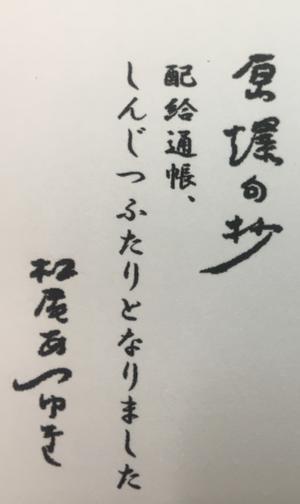 原爆句抄
配給通帳、
しんじつふたりとなりました
松尾あつゆき